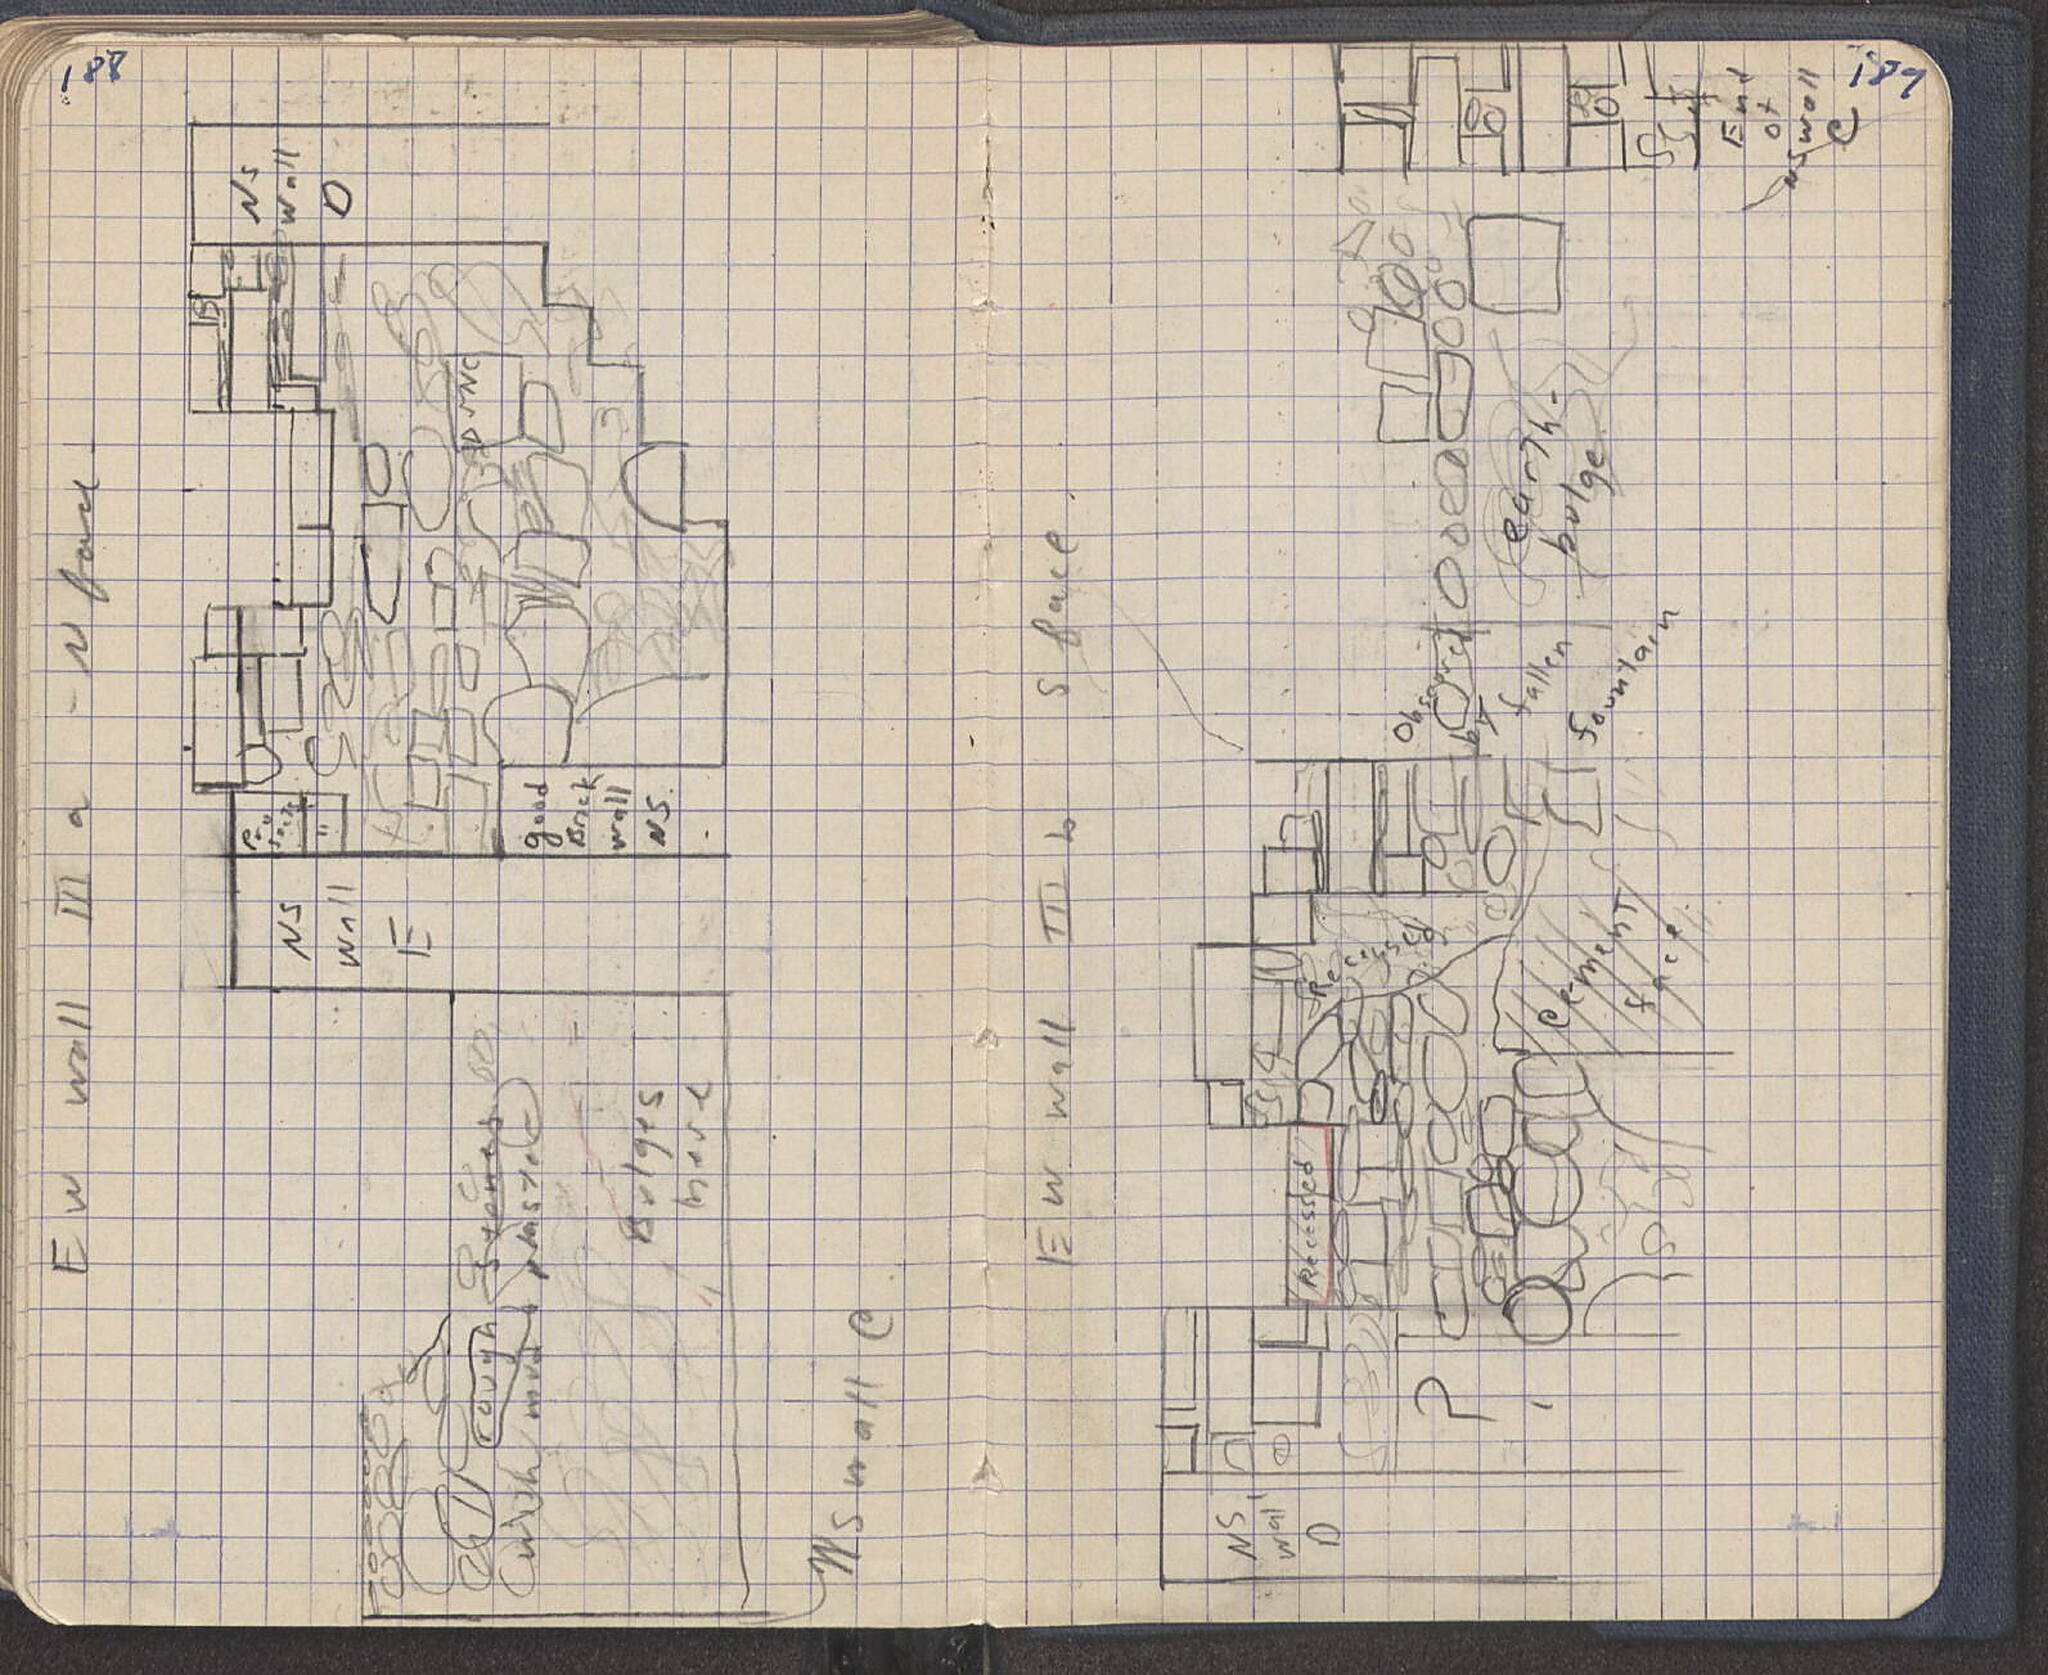 188
EW wall III a - N face
NS
wall
D
NS
wall
E
good
Brick
wall
NS.
rough stones
with mud plaster
Bulges
here
NS wall C
189
EW wall III b S face.
NS
wall
D
?
Recessed
Recessed
Cement
face
Obscured
by
fallen
fountain
earth-
bulge
End
of
NS wall
C